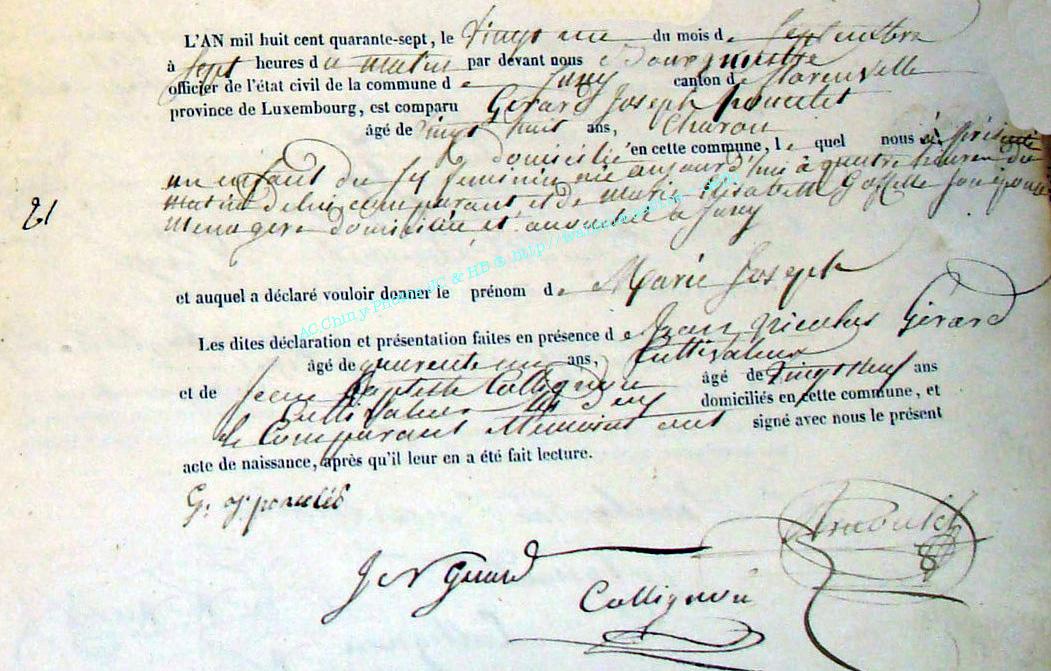 L'AN mil huit cent quarante-sept, le Vingt un du mois de Septembre
à Sept heures du matin par devant nous
officier de l'état civil de la commune de canton de florenville
province de Luxembourg, est comparu Gérard Joseph Poncelet
âgé de vingt huit ans, Charon
domicilié en cette commune, le quel nous a présenté
un enfant du féminin née aujourd'hui à quatre heures du
matin de lui comparant et de marie Elisabeth Son épouse
Menagère domiciliée et
21
et auquel a déclaré vouloir donner le prénom de Marie Joseph
Les dites déclaration et présentation faites en présence de Jean Nicolas Gérard
âgé de quarente un ans, Cultivateur
et de Jean Baptiste Collignon âgé de vingt neuf ans
Cultivateur les deux domiciliés en cette commune, et
le Comparant témoins ont signé avec nous le présent
acte de naissance, après qu'il leur en a été fait lecture.
G. J. poncelet
J N Gérard
Collignon
AC Chiny Photos JC & HB & http://